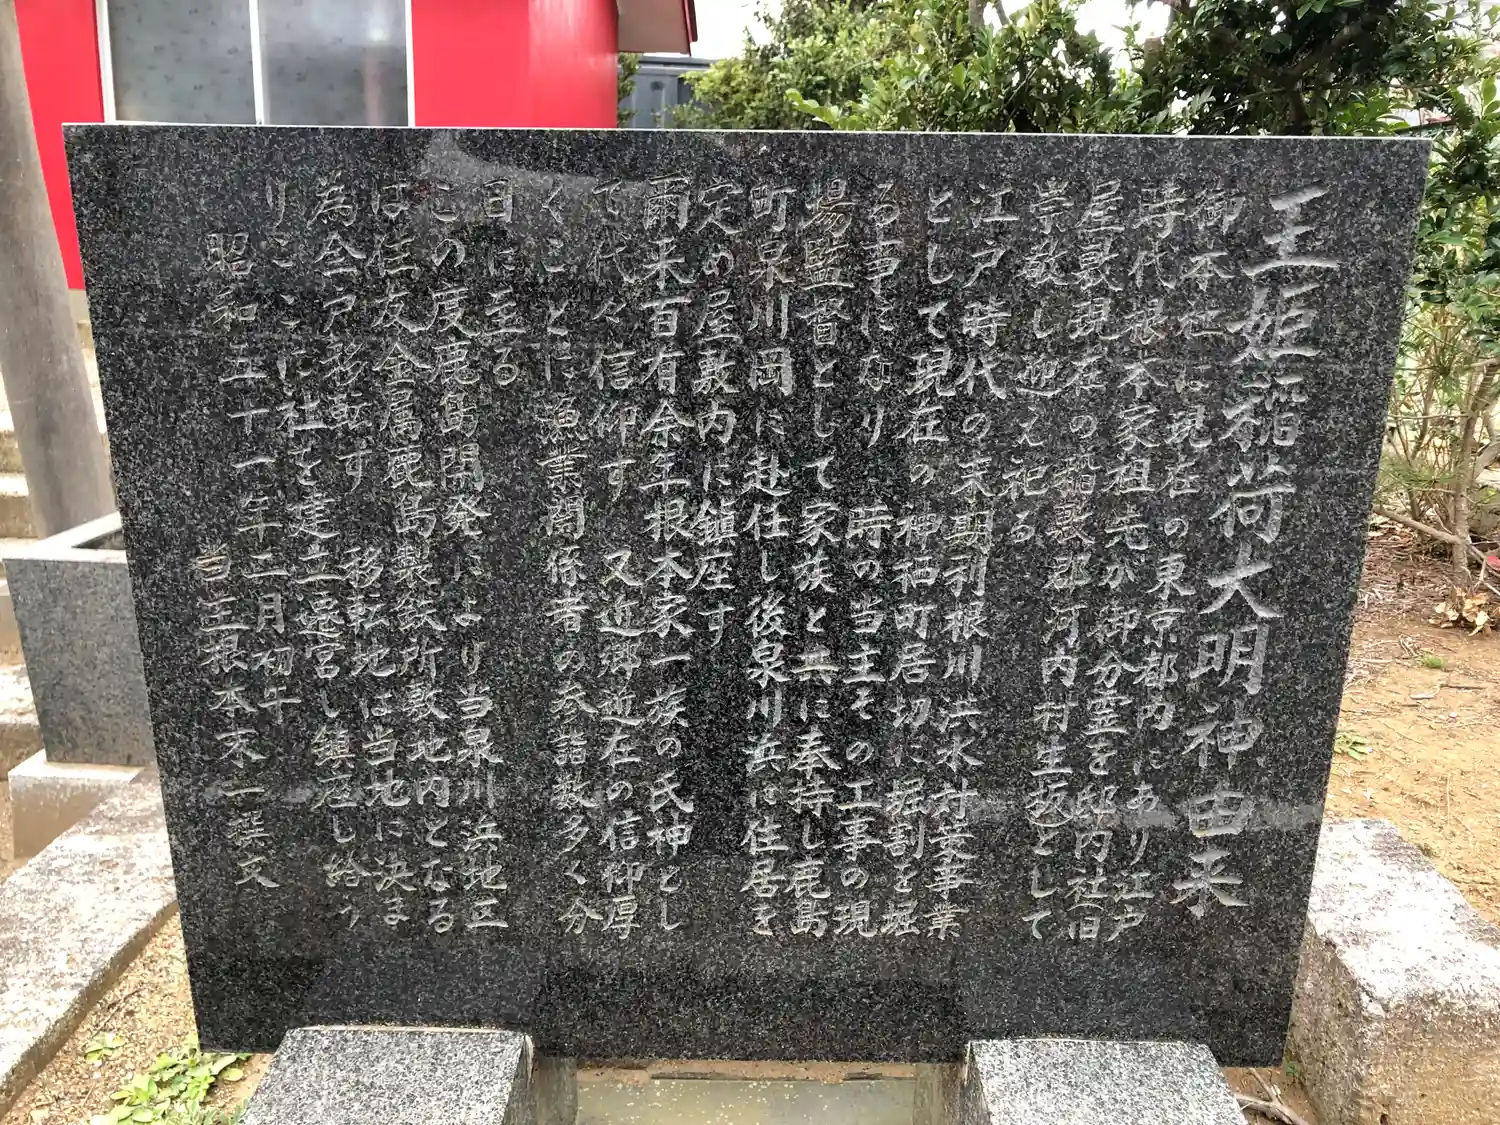 王姫稲荷大明神由来
御本社は現在の東京都内にあり江戸
時代根本家祖先が御分霊を邸内社旧
屋敷現在の稲敷郡河内村生板として
崇敬し迎え祀る
江戸時代の末期利根川洪水対策事業
として現在の神栖町居切に堀割を堀
る事になり時の当主その工事の現
場監督として家族と共に奉持し鹿島
町泉川岡に赴任し後泉川浜に住居を
定め屋敷内に鎮座す
爾来百有余年根本家一族の氏神とし
て代々信仰す 又近郷近在の信仰厚
くことに漁業関係者の参詣数多く今
日に至る
この度鹿島開発により当泉川浜地区
は住友金属鹿島製鉄所敷地内となる
為全戸移転す 移転地は当地に決ま
りこゝに社を建立遷宮し鎮座し給う
昭和五十一年二月初午
当主根本 一撰文